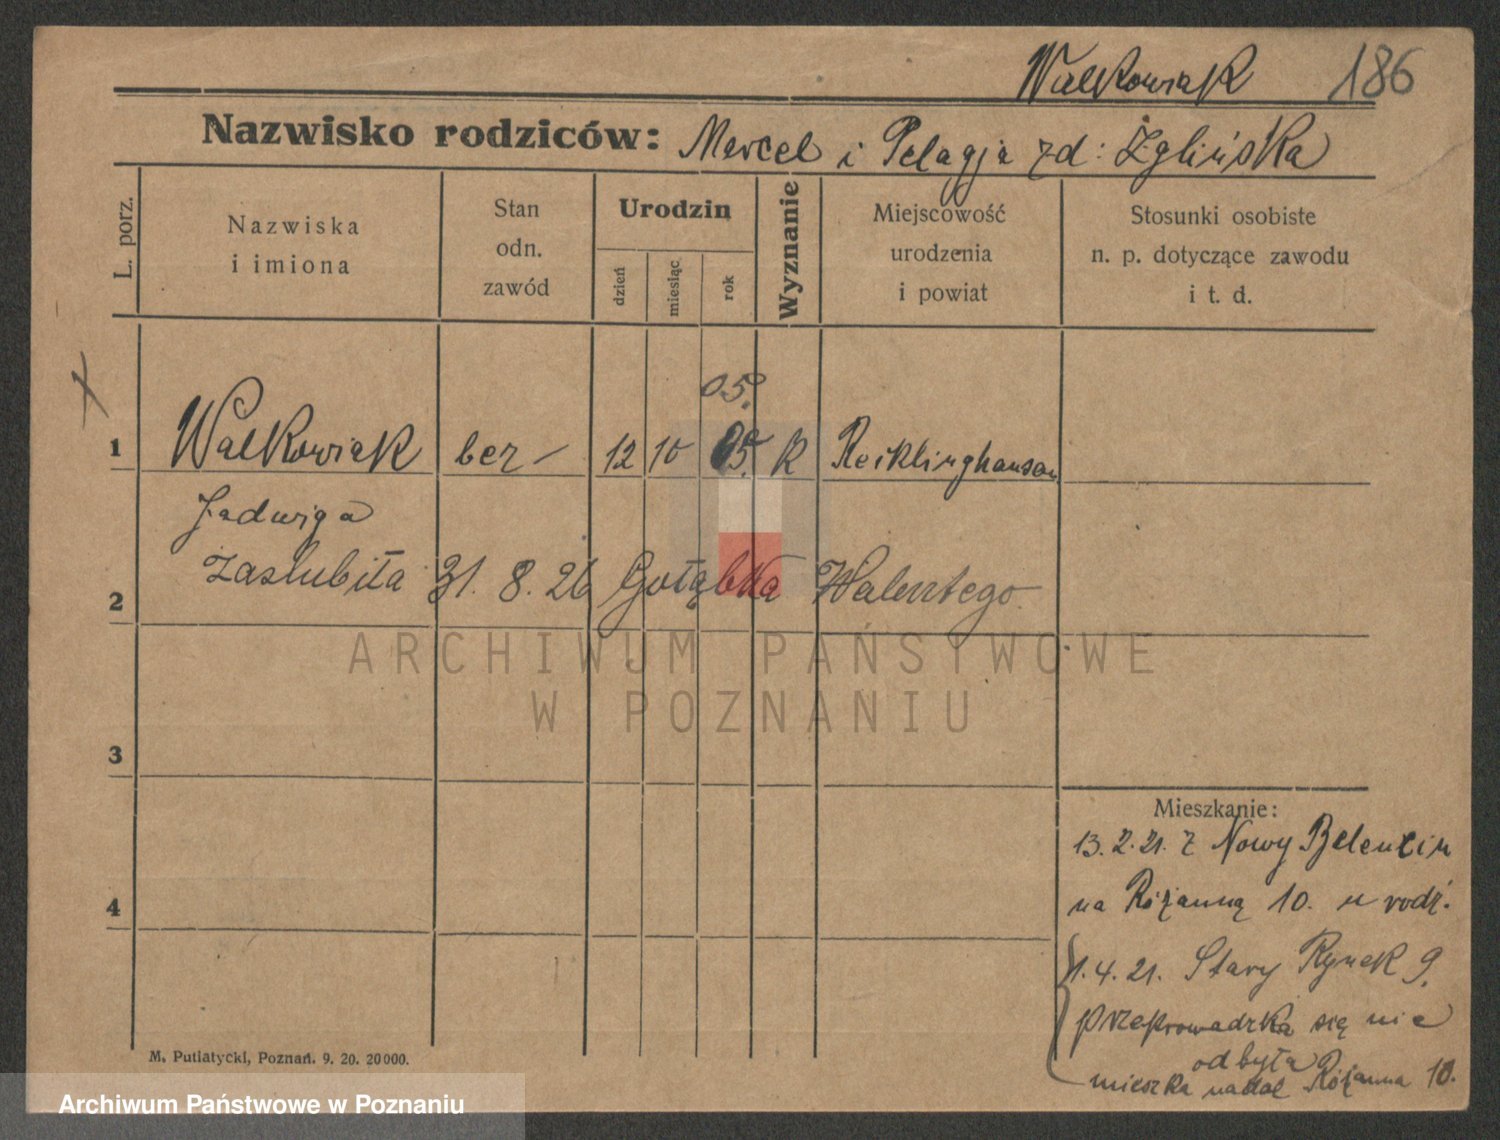 Walkowiak 186
Nazwisko rodziców: Marcel i Pelagja zd: Żglińska
L. porz.
Nazwiska
i imiona
Stan
odn.
zawód
Urodzin
dzień
miesiąc
rok
Wyznanie
Miejscowość
urodzenia
i powiat
Stosunki osobiste
n. p. dotyczące zawodu
i t. d.
05.
1 Walkowiak bez – 12 10 05. K Recklinghausen
Jadwiga
2 zaslubiła 31. 8. 26 Gołąbka Walentego
ARCHIWUM PAŃSTWOWE
W POZNANIU
3
Mieszkanie:
13.2.21. z Nowy Belencin
4 na Różanną 10. u rodz.
1.4.21. Stary Rynek 9.
przeprowadzka się nie
odbyła
mieszka nadal Różanna 10.
M. Putiatycki, Poznań. 9. 20. 20000.
Archiwum Państwowe w Poznaniu